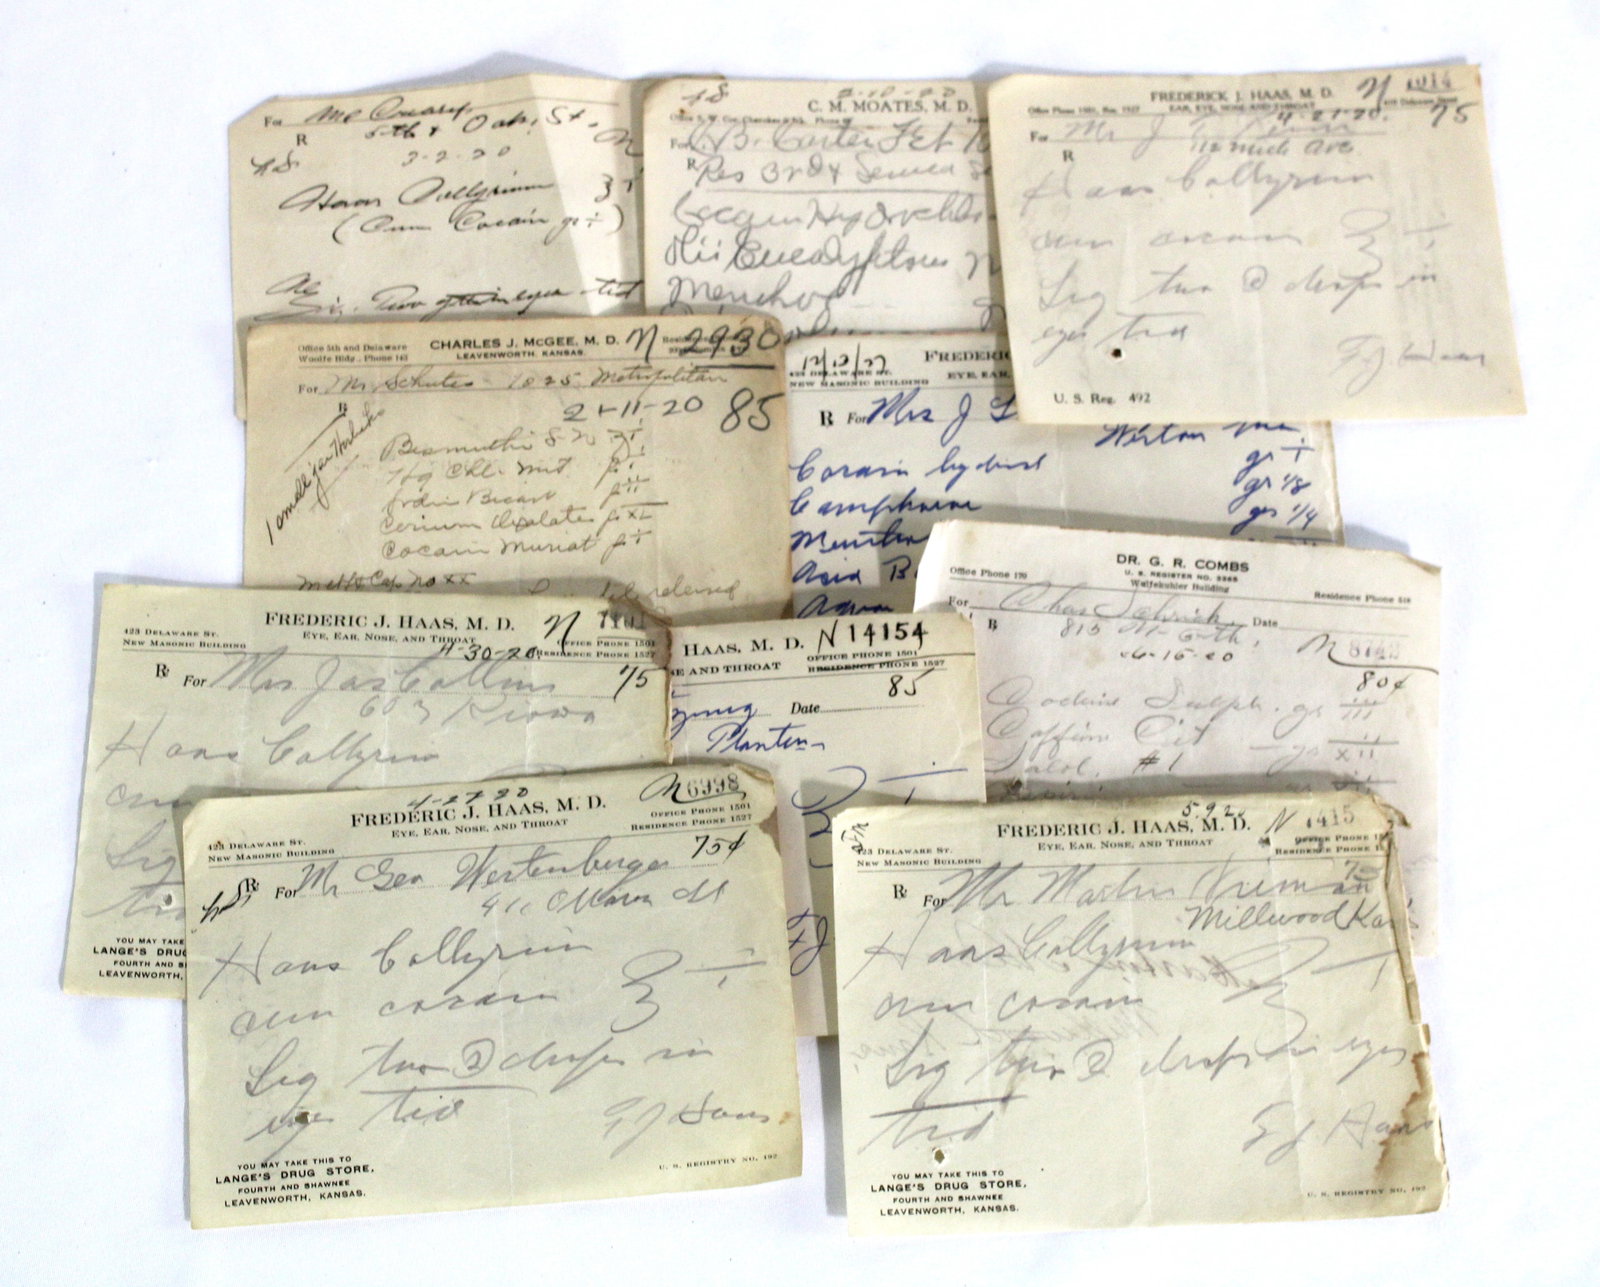 For Mc
R 5th & Oak St.
3-2-20
Haas Collyrium
(Cum Cocain gr i)
Sig. Two gtts in eyes tid
C. M. MOATES, M. D.
For
R Res 3rd & Seneca
Cocain Hydrochlo
Olii Eucalyptous
Menthol
FREDERICK J. HAAS, M. D. N 7014
EAR, EYE, NOSE AND THROAT
4-21-20. 75
For Mr J
R
Haas Collyrium
cum cocain
Sig two 2 drops in
eyes tid
F J Haas
U. S. Reg. 492
Office 5th and Delaware
Woolfe Bldg., Phone 143
CHARLES J. McGEE, M. D. N 2930
LEAVENWORTH, KANSAS.
For Mr Schutes 1025 Metropolitan
R 2-11-20 85
Bismuthi S. N.
Hg Chl. Mit
Sodii Bicarb
Cerium Oxalate
Cocain Muriat
12/12/27
423 DELAWARE ST.
NEW MASONIC BUILDING
FREDERIC
EYE, EAR,
R For Mrs J
Weston Mo.
Cocain hydrochl gr i
Camphorae gr 1/8
Menthol grs 1/4
Acid B
Aquae
DR. G. R. COMBS
U. S. REGISTER NO. 3365
Wulfekuhler Building
Office Phone 170
Residence Phone
For Chas Date
R 815 N. 5th
6-16-20
80¢
Codeine Sulph. gr iii
Caffein Cit grs xii
Salol. #1
423 DELAWARE ST.
NEW MASONIC BUILDING
FREDERIC J. HAAS, M. D. N 7101
EYE, EAR, NOSE, AND THROAT
4-30-20.
OFFICE PHONE 1501
RESIDENCE PHONE 1527
R For Mrs Jas Collins 75
603 Kiowa
Haas Collyrium
cum
Sig
tid
YOU MAY TAKE
LANGE'S DRUG
FOURTH AND S
LEAVENWORTH,
HAAS, M. D. N 14154
SE AND THROAT
OFFICE PHONE 1501
RESIDENCE PHONE 1527
85
Young Date
Planters
FJ
4-27-20 N 6998
423 DELAWARE ST.
NEW MASONIC BUILDING
FREDERIC J. HAAS, M. D.
EYE, EAR, NOSE, AND THROAT
OFFICE PHONE 1501
RESIDENCE PHONE 1527
R For Mr Geo Wertenberger 75¢
Ottawa St
Haas Collyrium
cum cocain
Sig two 2 drops in
eyes tid
F J Haas
YOU MAY TAKE THIS TO
LANGE'S DRUG STORE,
FOURTH AND SHAWNEE
LEAVENWORTH, KANSAS.
U. S. REGISTRY NO. 492
5-9-20 N 7415
423 DELAWARE ST.
NEW MASONIC BUILDING
FREDERIC J. HAAS, M. D.
EYE, EAR, NOSE, AND THROAT
OFFICE PHONE
RESIDENCE PHONE
75
R For Mr Martin
Millwood Kas
Haas Collyrium
cum cocain
Sig two 2 drops in eyes
tid
F J Haas
YOU MAY TAKE THIS TO
LANGE'S DRUG STORE,
FOURTH AND SHAWNEE
LEAVENWORTH, KANSAS.
U. S. REGISTRY NO. 492